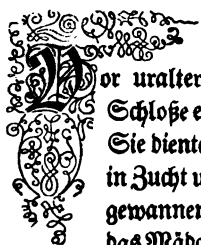 Vor uralter
Schloße e
Sie dient
in Zucht u
gewanne
das Mäd